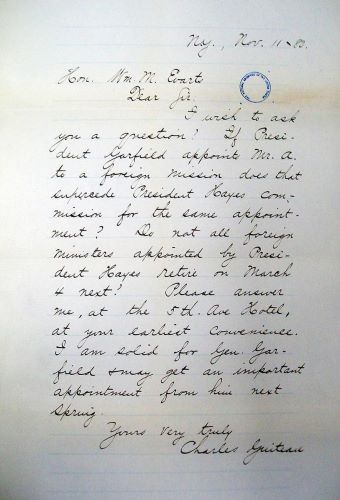 Ny., Nov. 11-80.
Hon. Wm. M. Evarts
Dear Sir.
I wish to ask
you a question? If Presi-
dent Garfield appoints Mr. A.
to a foreign mission does that
supercede President Hayes com-
mission for the same appoint-
ment? Do not all foreign
ministers appointed by Presi-
dent Hayes retire on March
4 next? Please answer
me, at the 5th. Ave Hotel,
at your earliest convenience.
I am solid for Gen. Gar-
field & may get an important
appointment from him next
Spring.
Yours very truly
Charles Guiteau